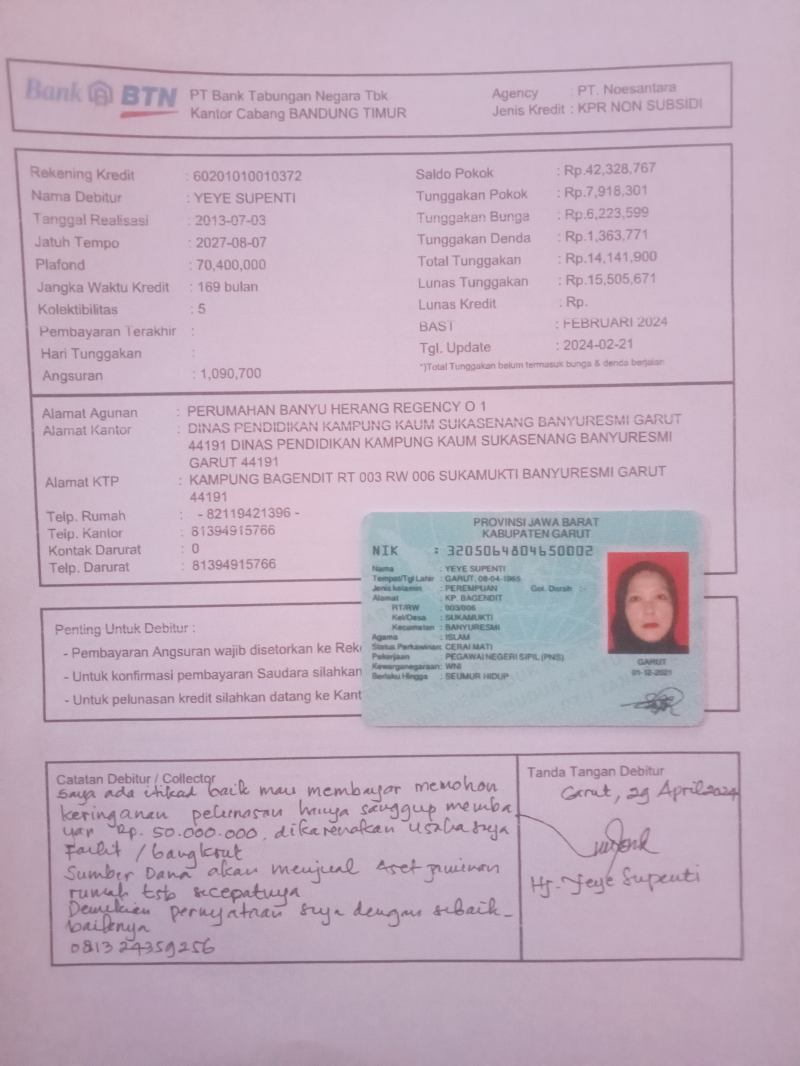 Bank BTN
PT Bank Tabungan Negara Tbk
Kantor Cabang BANDUNG TIMUR
Agency : PT. Noesantara
Jenis Kredit : KPR NON SUBSIDI
Rekening Kredit : 60201010010372
Nama Debitur : YEYE SUPENTI
Tanggal Realisasi : 2013-07-03
Jatuh Tempo : 2027-08-07
Plafond : 70,400,000
Jangka Waktu Kredit : 169 bulan
Kolektibilitas : 5
Pembayaran Terakhir :
Hari Tunggakan :
Angsuran : 1,090,700
Saldo Pokok : Rp.42,328,767
Tunggakan Pokok : Rp.7,918,301
Tunggakan Bunga : Rp.6,223,599
Tunggakan Denda : Rp.1,363,771
Total Tunggakan : Rp.14,141,900
Lunas Tunggakan : Rp.15,505,671
Lunas Kredit : Rp.
BAST : FEBRUARI 2024
Tgl. Update : 2024-02-21
*)Total Tunggakan belum termasuk bunga & denda berjalan
Alamat Agunan : PERUMAHAN BANYU HERANG REGENCY O 1
Alamat Kantor : DINAS PENDIDIKAN KAMPUNG KAUM SUKASENANG BANYURESMI GARUT
44191 DINAS PENDIDIKAN KAMPUNG KAUM SUKASENANG BANYURESMI
GARUT 44191
Alamat KTP : KAMPUNG BAGENDIT RT 003 RW 006 SUKAMUKTI BANYURESMI GARUT
44191
Telp. Rumah : - 82119421396 -
Telp. Kantor : 81394915766
Kontak Darurat : 0
Telp. Darurat : 81394915766
PROVINSI JAWA BARAT
KABUPATEN GARUT
NIK : 3205064804650002
Nama : YEYE SUPENTI
Tempat/Tgl Lahir : GARUT, 08-04-1965
Jenis kelamin : PEREMPUAN Gol. Darah : -
Alamat : KP. BAGENDIT
RT/RW : 003/006
Kel/Desa : SUKAMUKTI
Kecamatan : BANYURESMI
Agama : ISLAM
Status Perkawinan: CERAI MATI
Pekerjaan : PEGAWAI NEGERI SIPIL (PNS)
Kewarganegaraan: WNI
Berlaku Hingga : SEUMUR HIDUP
GARUT
01-12-2021
Penting Untuk Debitur :
- Pembayaran Angsuran wajib disetorkan ke Reke
- Untuk konfirmasi pembayaran Saudara silahkan
- Untuk pelunasan kredit silahkan datang ke Kant
Catatan Debitur / Collector
Saya ada itikad baik mau membayar memohon
keringanan pelunasan hanya sanggup memba
yar Rp. 50.000.000, dikarenakan usaha saya
Failit / bangkrut
Sumber Dana akan menjual Aset
rumah tsb secepatnya
Demikian pernyataan saya dengan sebaik-
baiknya
081324359256
Tanda Tangan Debitur
Garut, 29 April 2024
Hj. Yeye Supenti